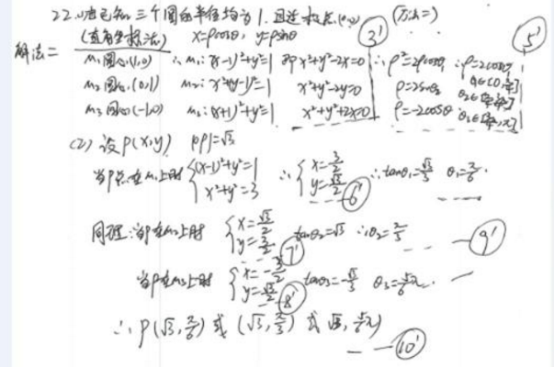 22.(1)法已知三个圆的半径均为1,且过极点(0,0) (方法二)
解法二 (直角坐标法) x=ρcosθ, y=ρsinθ 3' 5'
M₁圆心(1,0) ∴M₁:(x-1)²+y²=1 即x²+y²-2x=0 ∴ρ²=2ρcosθ, ∴ρ=2cosθ,
M₂圆心(0,1) M₂:x²+(y-1)²=1 x²+y²-2y=0 ρ=2sinθ
M₃圆心(-1,0) M₃:(x+1)²+y²=1 x²+y²+2x=0 ρ=-2cosθ
(2) 设P(x,y) |OP|=√3
当P点在M₁上时 {(x-1)²+y²=1 x²+y²=3 ∴{x=3/2 y=√3/2 6' ∴tanθ₁=√3/3 θ₁=π/6
同理:当P在M₂上时 {x=√3/2 y=3/2 7' tanθ₂=√3 ∴θ₂=π/3 9'
当P在M₃上时 {x=-3/2 y=√3/2 8' tanθ₃=-√3/3 θ₃=5/6π.
∴P(√3,π/6) 或 (√3,π/3) 或 (√3,5/6π)
10'